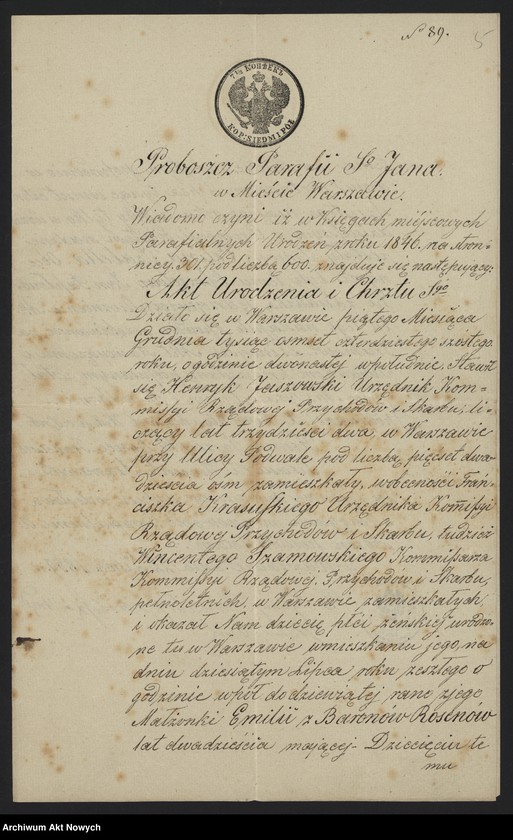 № 89.
5
7½ КОПѢЕКЪ
KOP: SIEDM I PÓŁ
Proboszcz Parafii Sgo Jana.
w Mieście Warszawie.
Wiadomo czyni iż w Księgach miejscowych
Parafialnych Urodzeń z roku 1846. na stron-
nicy 301. pod liczbą 600. znajduje się następujący:
Akt Urodzenia i Chrztu Sgo
Działo się w Warszawie piątego Miesiąca
Grudnia tysiąc osmset czterdziestego szóstego
roku, o godzinie dwónastej w południe. Stawił
się Henryk Jaszowski Urzędnik Kom-
missyi Rządowej Przychodów i Skarbu, li-
czący lat trzydzieści dwa, w Warszawie
przy Ulicy Podwale pod liczbą pięćset dwa-
dzieścia ośm zamieszkały, w obecności Fran-
ciszka Krasuskiego Urzędnika Kommissyi
Rządowej Przychodów i Skarbu, tudzież
Wincentego Szamowskiego Kommissarza
Kommissyi Rządowej Przychodów i Skarbu,
pełnoletnich, w Warszawie zamieszkałych
i okazał Nam dziecię płci żeńskiej urodzo-
ne tu w Warszawie w mieszkaniu jego, na
dniu dziesiątym Lipca roku zeszłego o
godzinie wpół do dziewiątej rano z jego
Małżonki Emilii z Baronów Rosenów
lat dwadzieścia mającej – Dziecięciu te
mu
Archiwum Akt Nowych